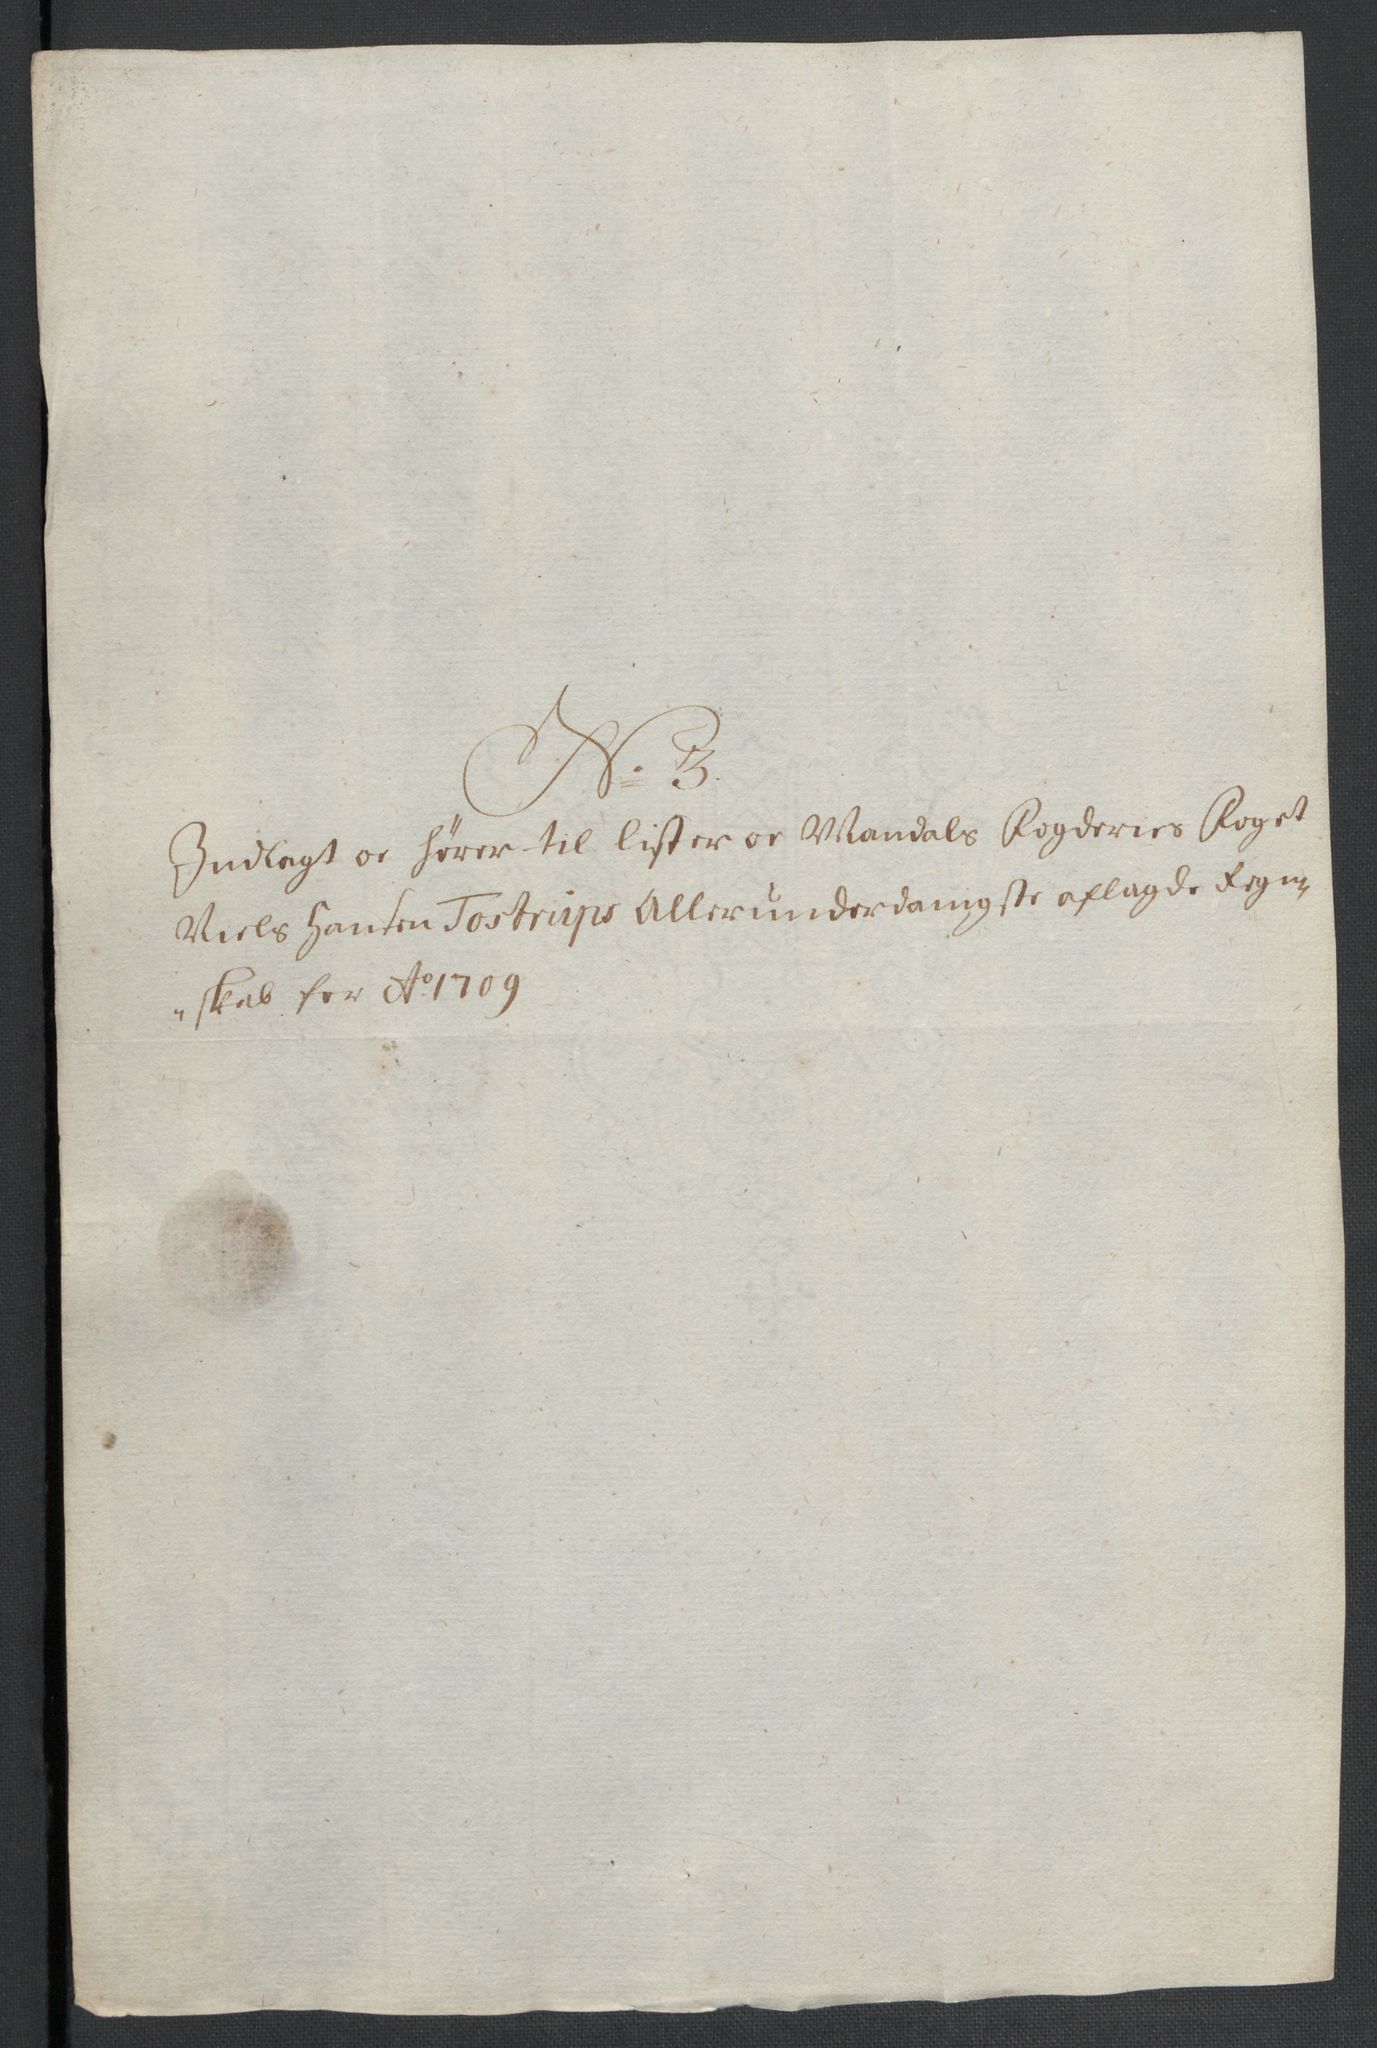 N. 3.
Indlagt oc hører til Lister oc Mandals Fogderies Foget
Niels Hansen Tostrups Allerunderdanigste aflagde Regn„
„skab for Ao 1709